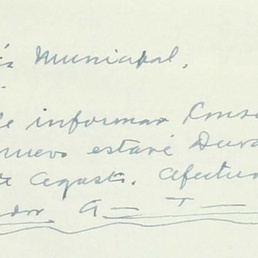 is Municipal,
le informar Conse
nuevo estaré Dura
te Agosto. Afectuo
ador A— T—